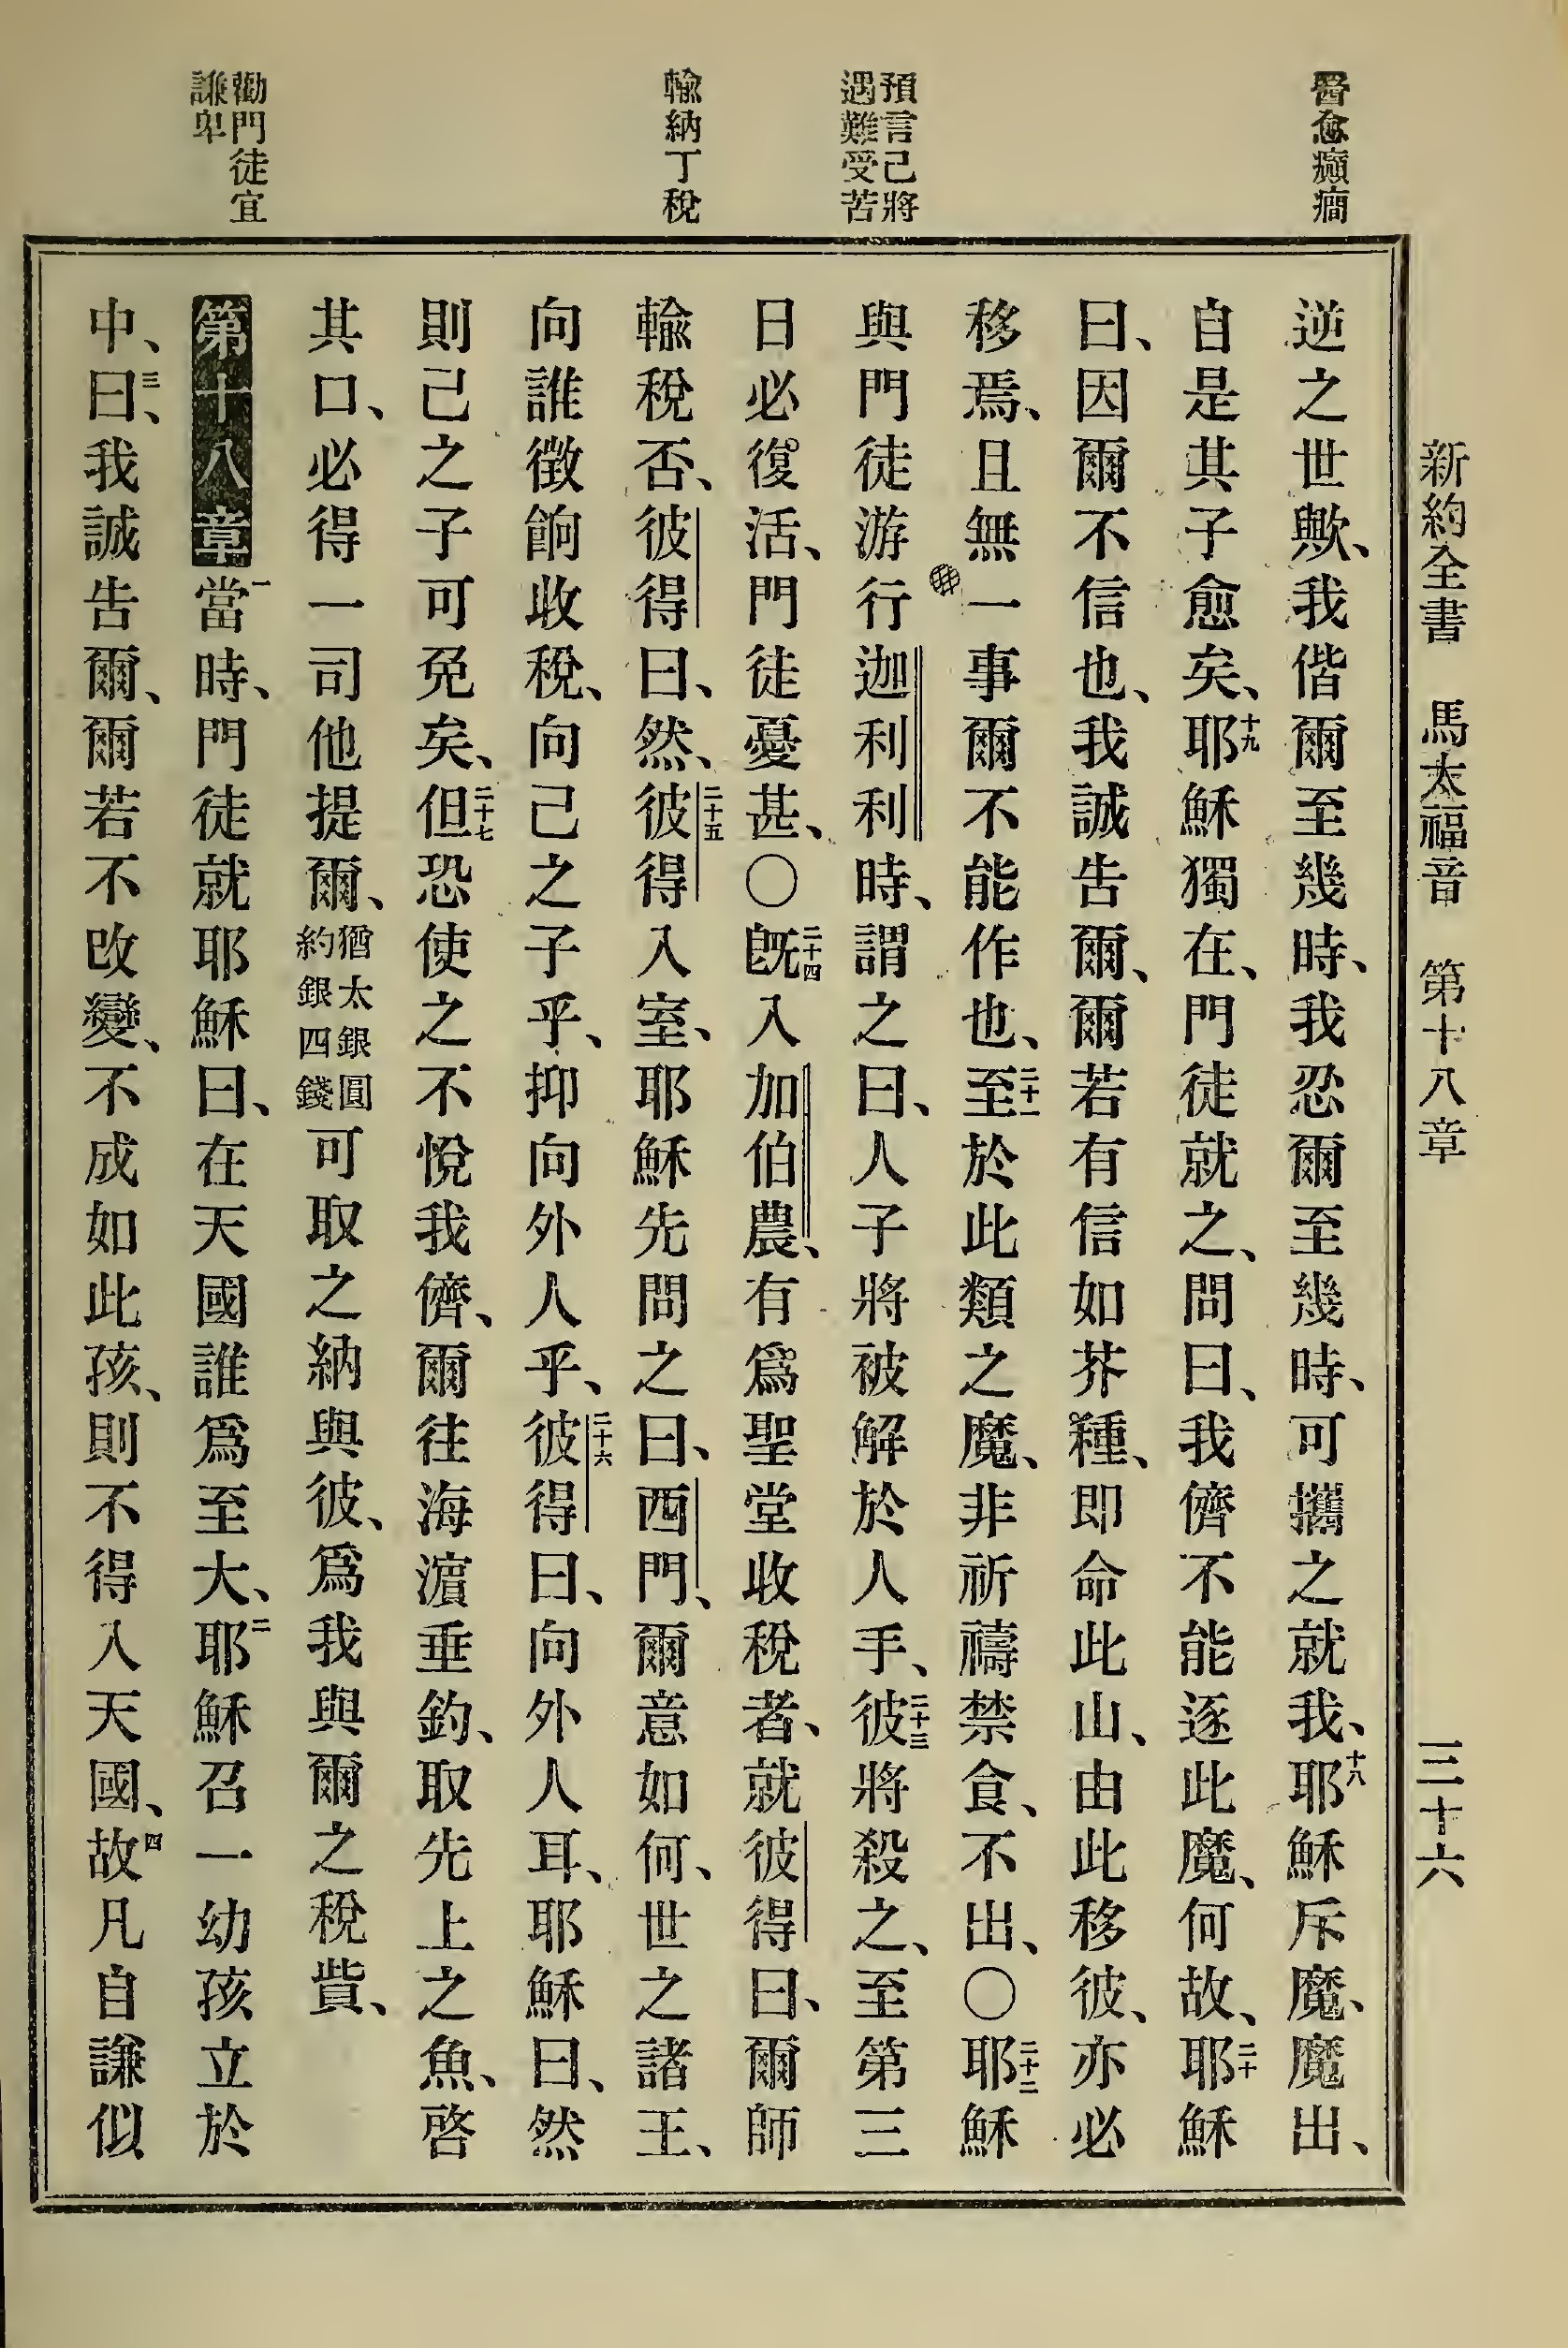 新約全書　馬太福音　第十八章　三十六
醫愈癲癇
預言己將
遇難受苦
輸納丁稅
勸門徒宜
謙卑
逆之世歟、我偕爾至幾時、我忍爾至幾時、可攜之就我、十八耶穌斥魔、魔出、
自是其子愈矣、十九耶穌獨在、門徒就之、問曰、我儕不能逐此魔、何故、二十耶穌
曰、因爾不信也、我誠告爾、爾若有信如芥種、即命此山、由此移彼、亦必
移焉、且無一事爾不能作也、二十一至於此類之魔、非祈禱禁食、不出、〇二十二耶穌
與門徒游行迦利利時、謂之曰、人子將被解於人手、二十三彼將殺之、至第三
日必復活、門徒憂甚、〇二十四旣入加伯農、有爲聖堂收稅者、就彼得曰、爾師
輸稅否、彼得曰、然、二十五彼得入室、耶穌先問之曰、西門、爾意如何、世之諸王、
向誰徵餉收稅、向己之子乎、抑向外人乎、二十六彼得曰、向外人耳、耶穌曰、然
則己之子可免矣、二十七但恐使之不悅我儕、爾往海濵垂釣、取先上之魚、啓
其口、必得一司他提爾、猶太銀圓約銀四錢可取之納與彼、爲我與爾之稅貲、
第十八章一當時、門徒就耶穌曰、在天國誰爲至大、二耶穌召一幼孩立於
中、三曰、我誠告爾、爾若不改變、不成如此孩、則不得入天國、四故凡自謙似